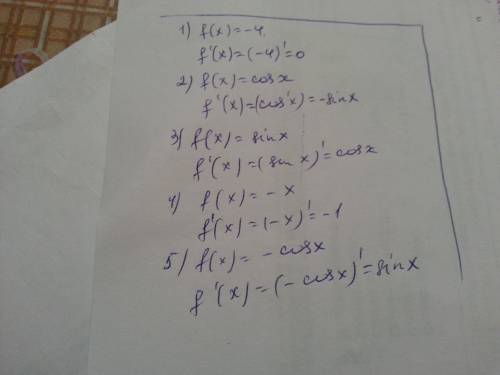 1) f(x)=-4.
f'(x)=(-4)'=0
2) f(x)=cosx
f'(x)=(cos'x)=-sinx
3) f(x)=sinx
f'(x)=(sin x)'=cosx
4) f(x)=-x
f'(x)=(-x)'=-1
5) f(x)=-cosx
f'(x)=(-cosx)'=sinx